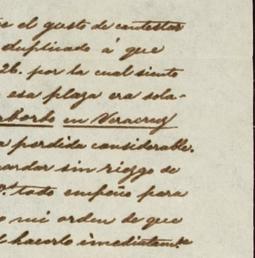 el gusto de contestar
duplicado á que
26. por la cual siento
esa plaza era sola-
en Veracruz
perdida considerable.
sin riezgo de
todo empeño para
mi orden de que
hacerlo imediatam.te